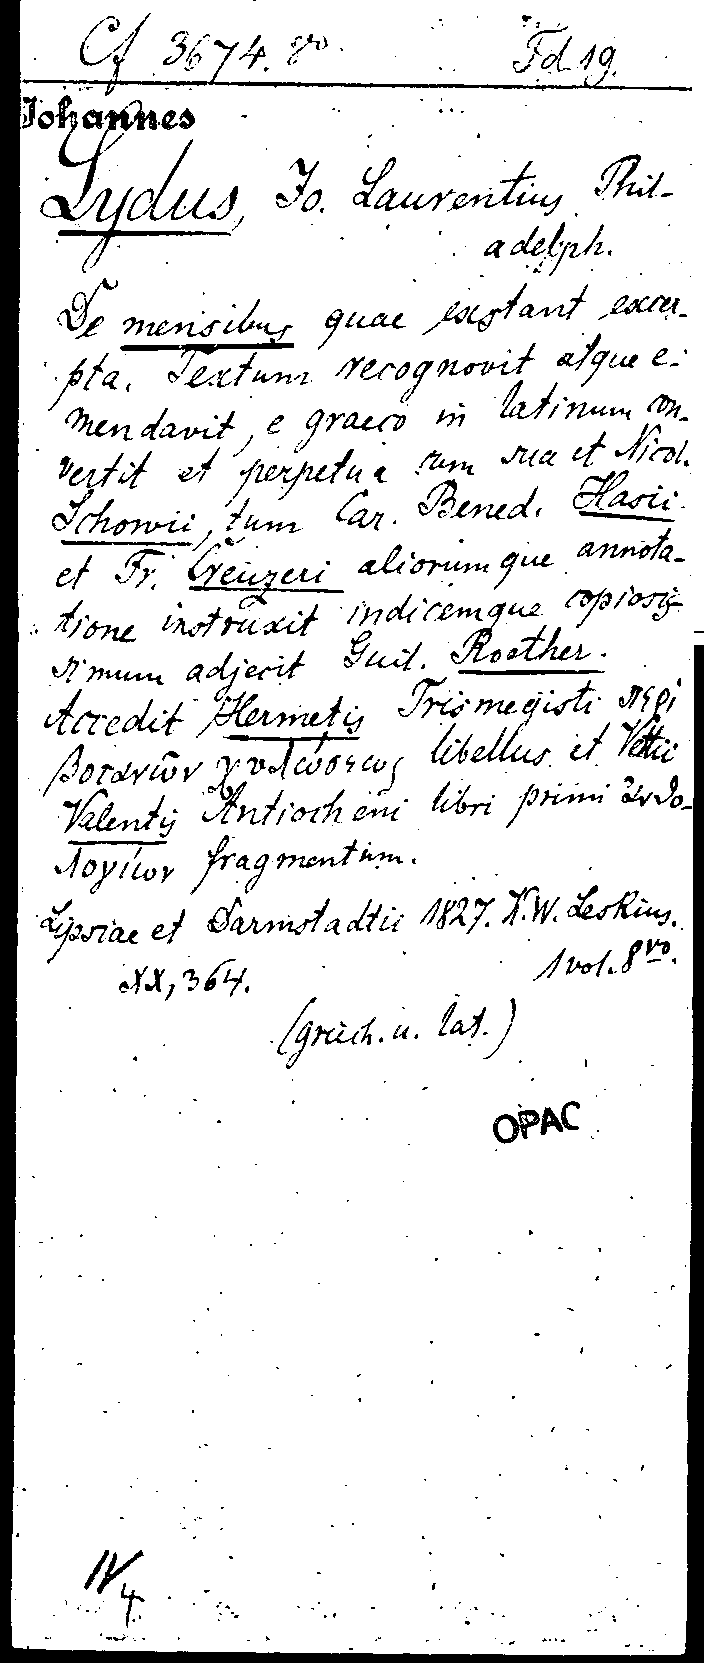 Cf 3674. 8vo. Fd 19.
Johannes
Lydus, Jo. Laurentius Phil-
adelph.
De mensibus quae exstant excer-
pta. Textum recognovit atque e-
mendavit, e graeco in latinum con-
vertit et perpetua cum sua et Nicol.
Schowii, tum Car. Bened. Hasii
et Fr. Creuzeri aliorumque annota-
tione instruxit indicemque copiosis-
simum adjecit Guil. Roether.
Accedit Hermetis Trismegisti περὶ
βοτανῶν χυλώσεως libellus et Vettii
Valentis Antiocheni libri primi ἀνθο-
λογιῶν fragmentum.
Lipsiae et Darmstadtii 1827. K.W. Leskius.
XX, 364. 1 vol. 8vo.
(griech. u. lat.)
OPAC
IV/4